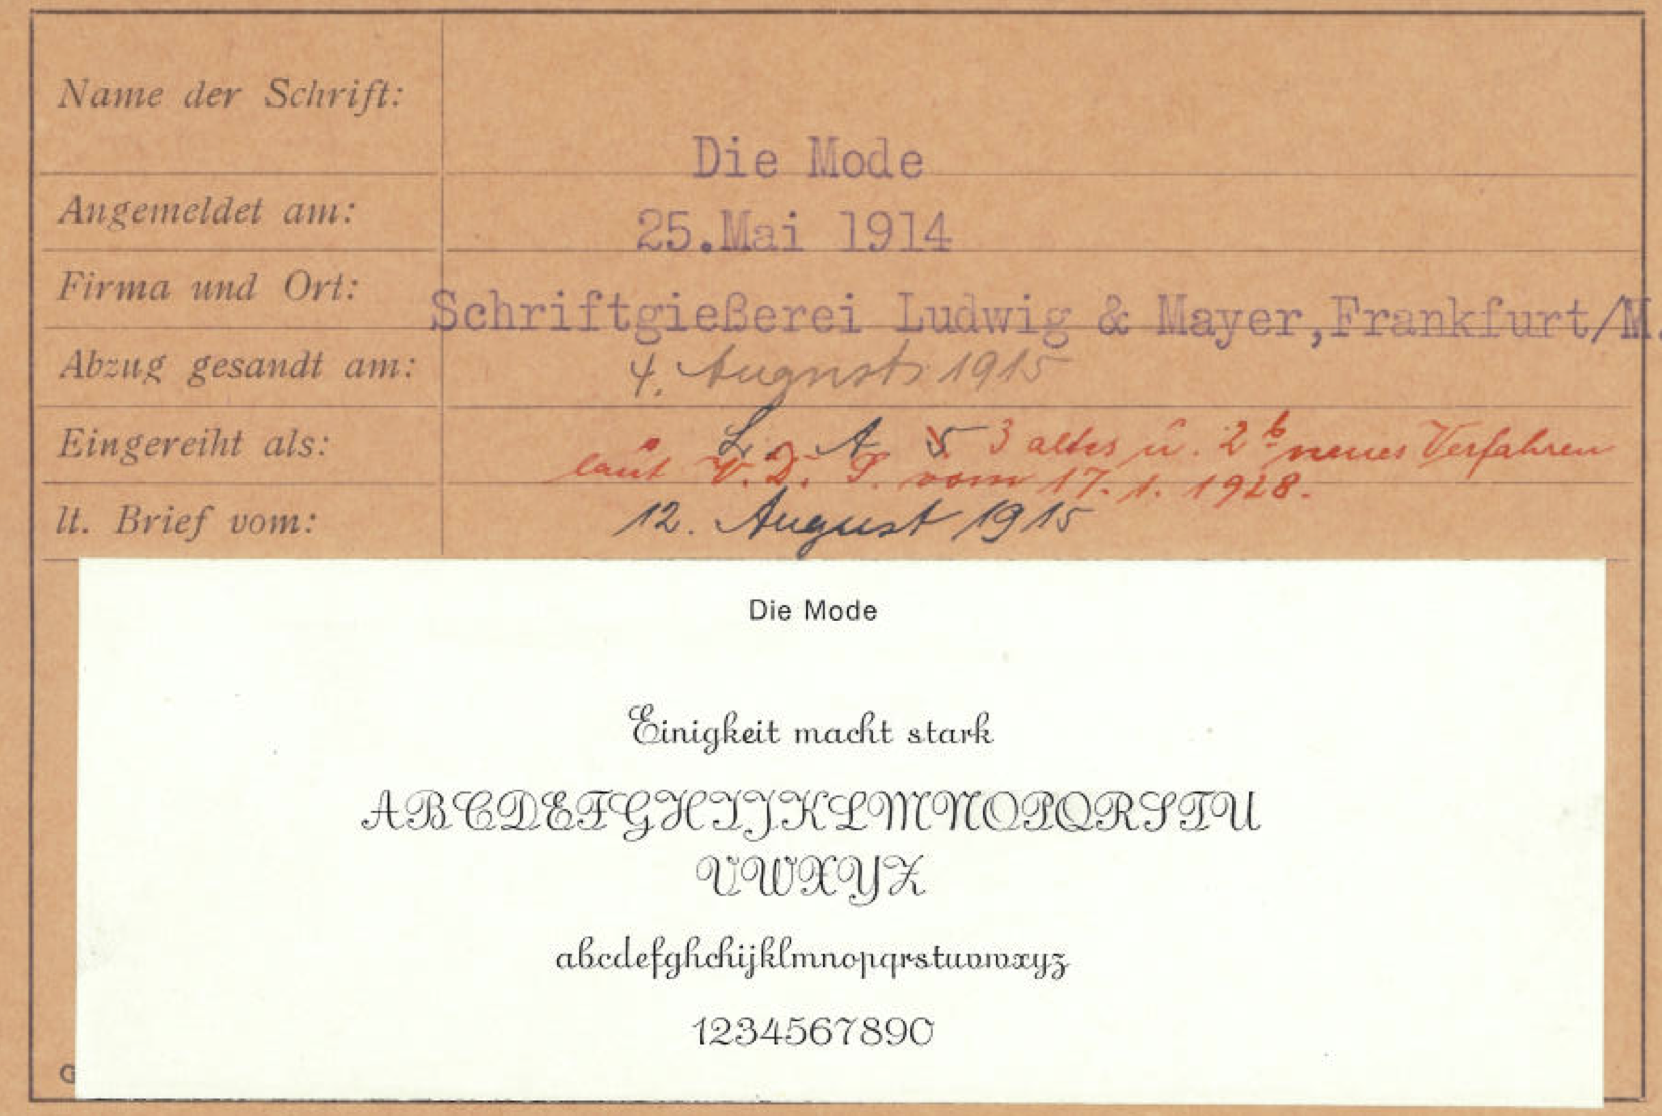 Name der Schrift:
Die Mode
Angemeldet am:
25.Mai 1914
Firma und Ort:
Schriftgießerei Ludwig & Mayer,Frankfurt/M.
Abzug gesandt am:
4. August 1915
Eingereiht als:
L. A 5 3 altes u. 2b neues Verfahren
laut V. D. S. vom 17. 1. 1928.
lt. Brief vom:
12. August 1915
Die Mode
Einigkeit macht stark
ABCDEFGHIJKLMNOPQRSTU
VWXYZ
abcdefghchijklmnopqrstuvwxyz
1234567890
G